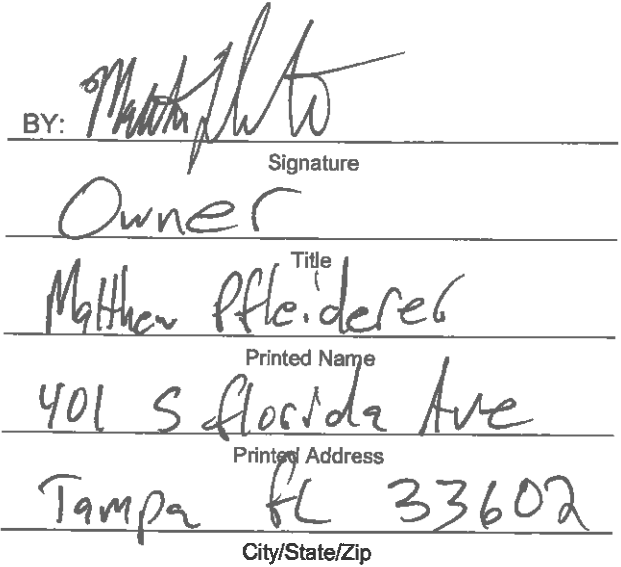 BY:
Signature
Owner
Title
Matthew Pfleiderer
Printed Name
401 S florida Ave
Printed Address
Tampa fL 33602
City/State/Zip